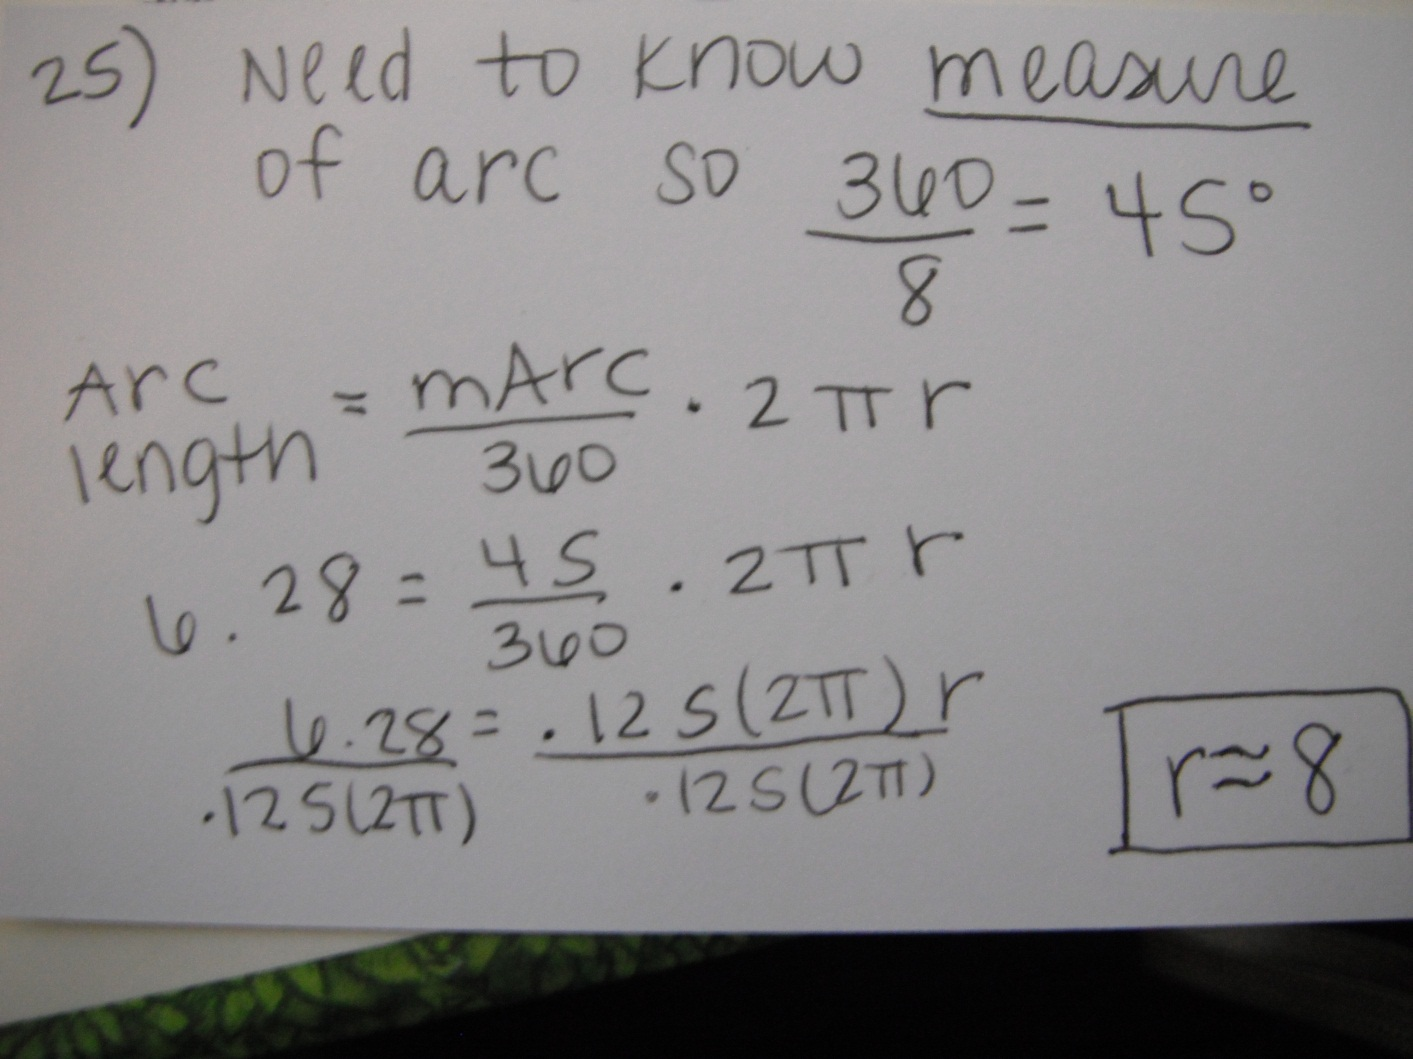 25) Need to know measure
of arc so 360/8 = 45°
Arc length = mArc/360 · 2πr
6.28 = 45/360 · 2πr
6.28/.125(2π) = .125(2π)r/.125(2π)
r≈8